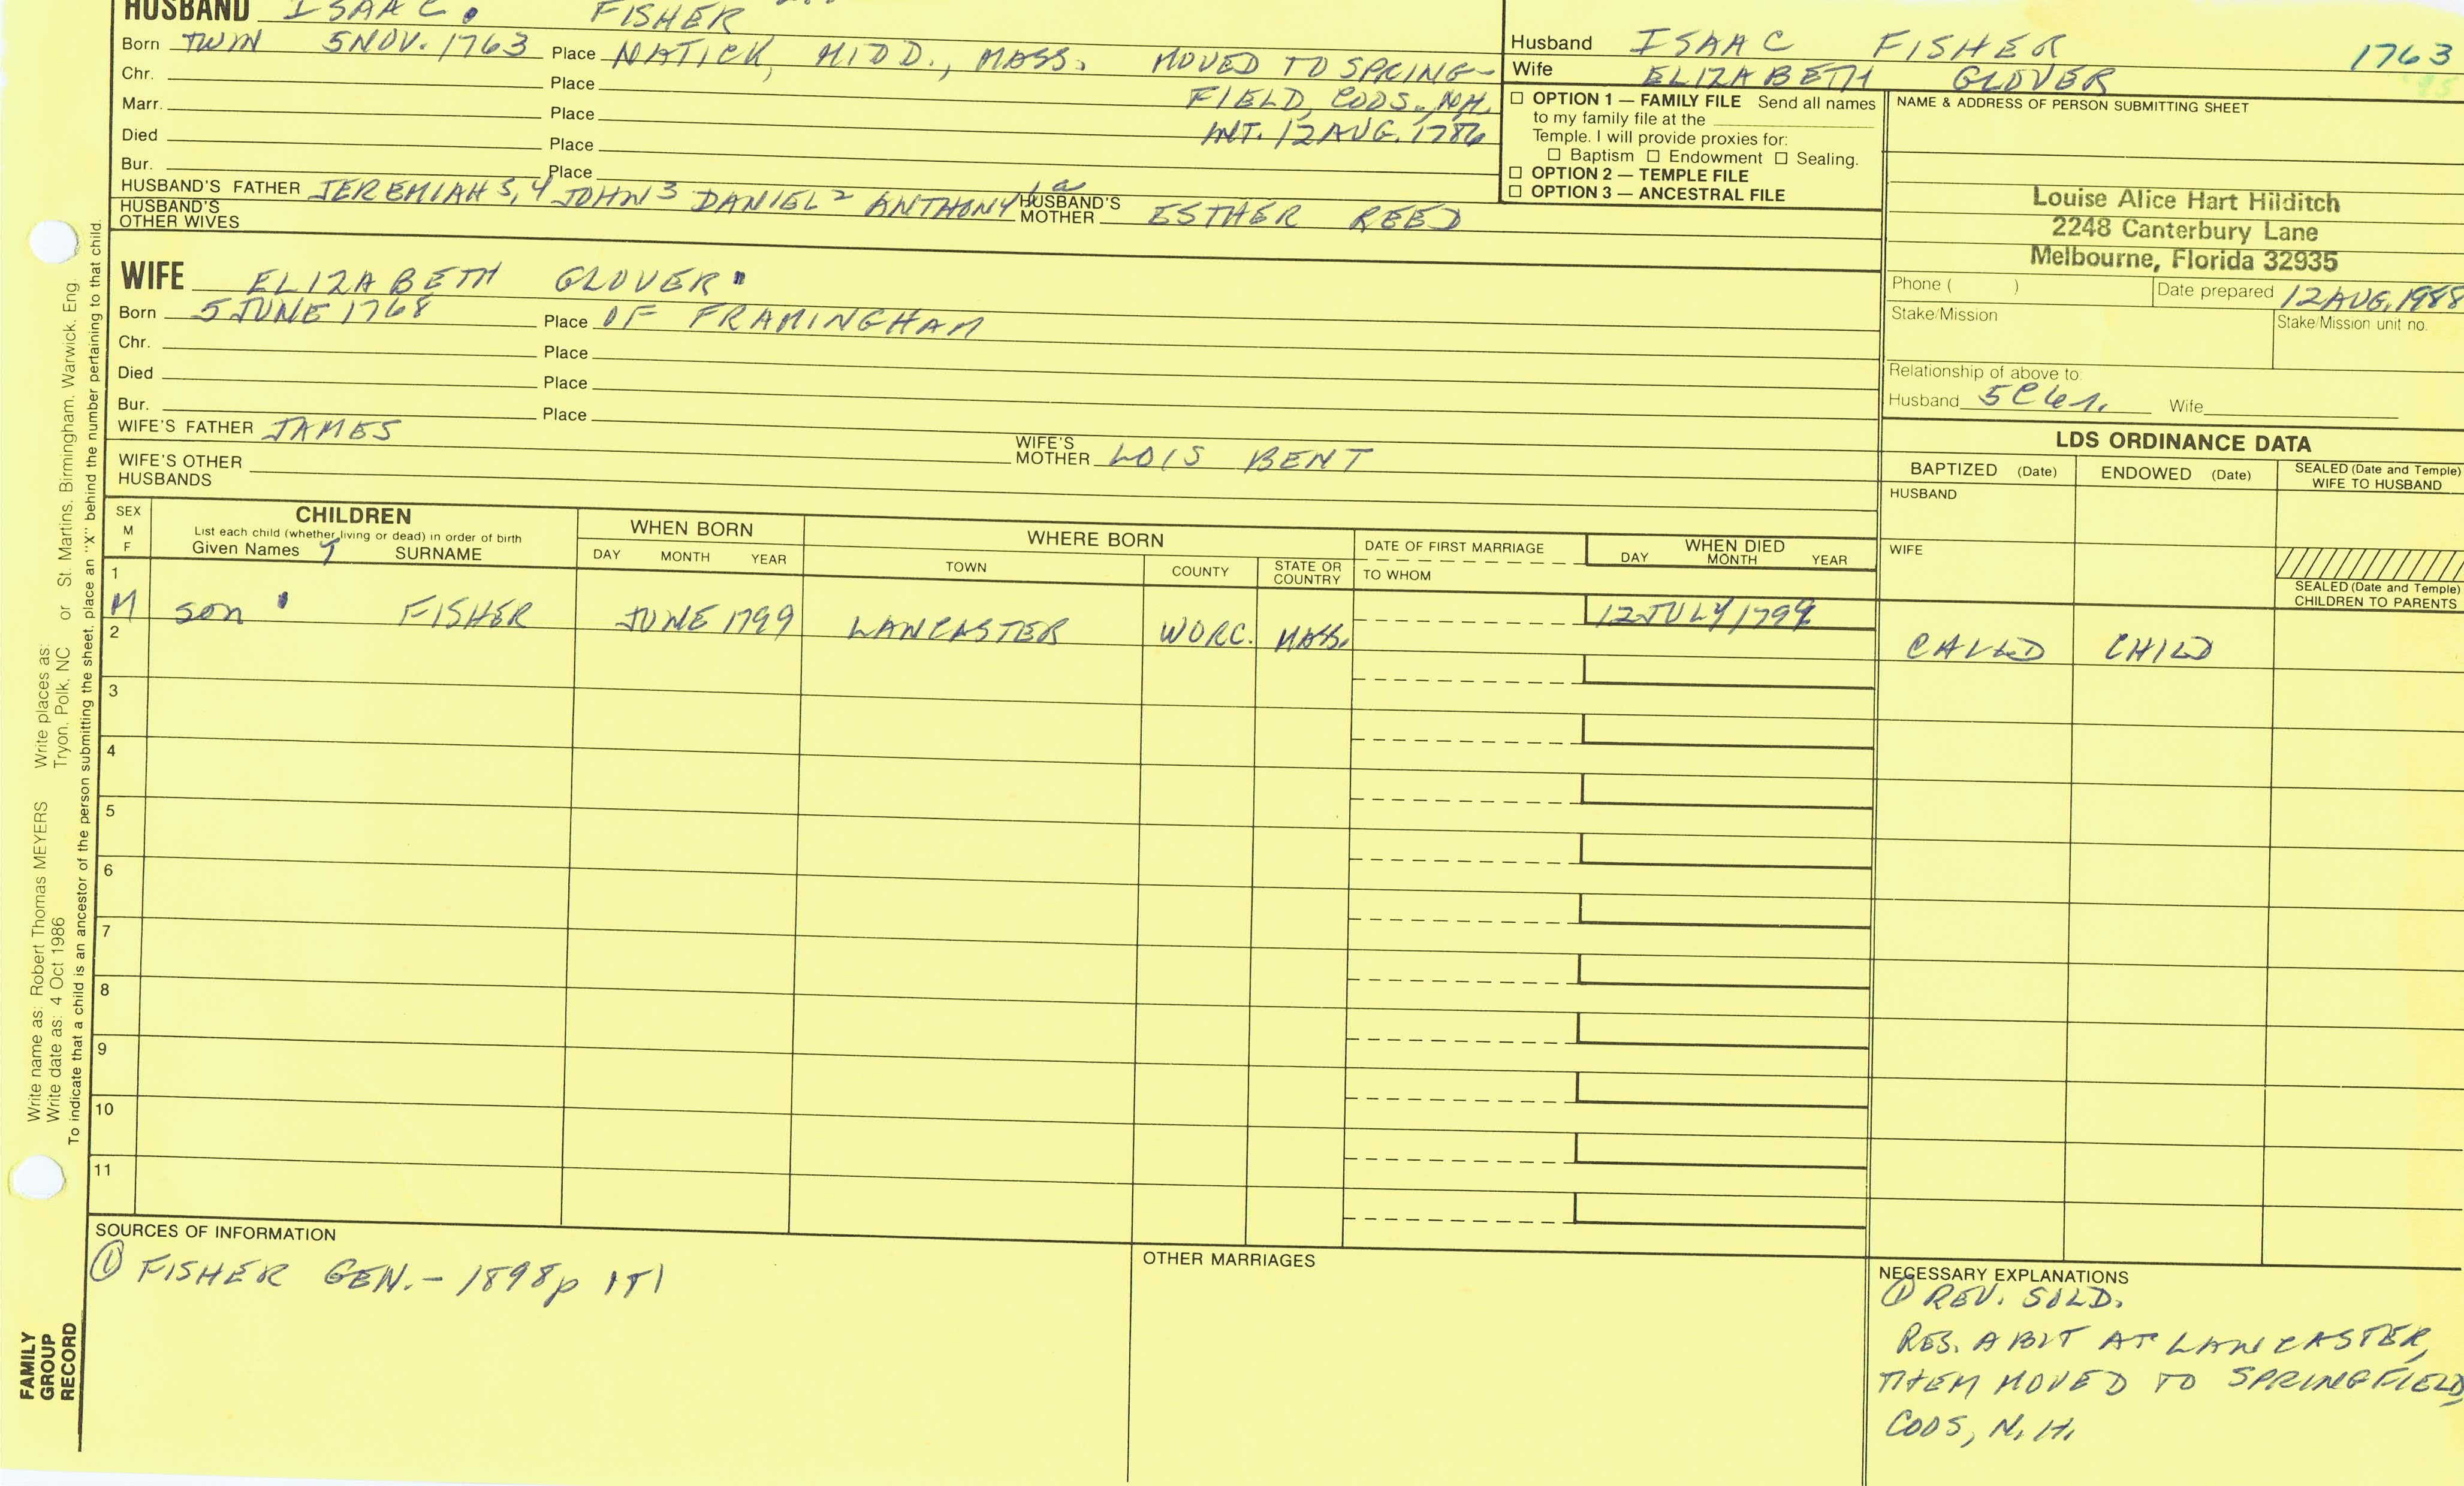 HUSBAND ISAAC. FISHER
Born TWIN 5 NOV. 1763 Place NATICK, MIDD., MASS. MOVED TO SPRING-
Chr. Place FIELD, COOS, NH.
Marr. Place INT. 12 AUG. 1786
Died Place
Bur. Place
HUSBAND'S FATHER JEREMIAH 5, 4 JOHN 3 DANIEL 2 ANTHONY 1a HUSBAND'S MOTHER ESTHER REED
HUSBAND'S OTHER WIVES
WIFE ELIZABETH GLOVER
Born 5 JUNE 1768 Place OF FRAMINGHAM
Chr. Place
Died Place
Bur. Place
WIFE'S FATHER JAMES WIFE'S MOTHER LOIS BENT
WIFE'S OTHER HUSBANDS
Husband ISAAC FISHER 1763
Wife ELIZABETH GLOVER
☐ OPTION 1 — FAMILY FILE Send all names
to my family file at the
Temple. I will provide proxies for:
☐ Baptism ☐ Endowment ☐ Sealing.
☐ OPTION 2 — TEMPLE FILE
☐ OPTION 3 — ANCESTRAL FILE
NAME & ADDRESS OF PERSON SUBMITTING SHEET
Louise Alice Hart Hilditch
2248 Canterbury Lane
Melbourne, Florida 32935
Phone ( ) Date prepared 12 AUG, 1988
Stake/Mission Stake/Mission unit no.
Relationship of above to:
Husband 5C6r. Wife
LDS ORDINANCE DATA
BAPTIZED (Date) ENDOWED (Date) SEALED (Date and Temple) WIFE TO HUSBAND
HUSBAND
WIFE
SEALED (Date and Temple)
CHILDREN TO PARENTS
SEX
M
F
CHILDREN
List each child (whether living or dead) in order of birth
Given Names SURNAME
WHEN BORN
DAY MONTH YEAR
WHERE BORN
TOWN COUNTY STATE OR COUNTRY
DATE OF FIRST MARRIAGE
TO WHOM
WHEN DIED
DAY MONTH YEAR
1
M son FISHER JUNE 1799 LANCASTER WORC. MASS. 12 JULY 1799 CALLED CHILD
2
3
4
5
6
7
8
9
10
11
SOURCES OF INFORMATION
① FISHER GEN.- 1898 p 171
OTHER MARRIAGES
NECESSARY EXPLANATIONS
① REV. SOLD.
RES. A BIT AT LANCASTER,
THEM MOVED TO SPRINGFIELD,
COOS, N.H.
Write name as: Robert Thomas MEYERS Write places as:
Write date as: 4 Oct 1986 Tryon, Polk, NC or St. Martins, Birmingham, Warwick, Eng.
To indicate that a child is an ancestor of the person submitting the sheet, place an "X" behind the number pertaining to that child.
FAMILY
GROUP
RECORD